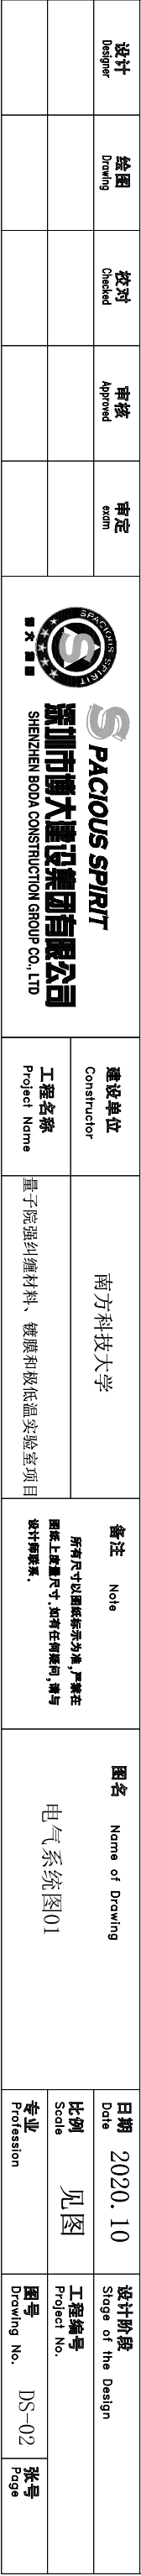 设计
Designer
绘图
Drawing
校对
Checked
审核
Approved
审定
exam
SPACIOUS SPIRIT
博大集团
SPACIOUS SPIRIT
深圳市博大建设集团有限公司
SHENZHEN BODA CONSTRUCTION GROUP CO., LTD
建设单位
Constructor
南方科技大学
工程名称
Project Name
量子院强纠缠材料、镀膜和极低温实验室项目
备注 Note
所有尺寸以图纸标示为准,严禁在
图纸上度量尺寸.如有任何疑问,请与
设计师联系.
图名 Name of Drawing
电气系统图01
日期
Date
2020.10
设计阶段
Stage of the Design
比例
Scale
见图
工程编号
Project No.
专业
Profession
图号
Drawing No.
DS-02
张号
Page